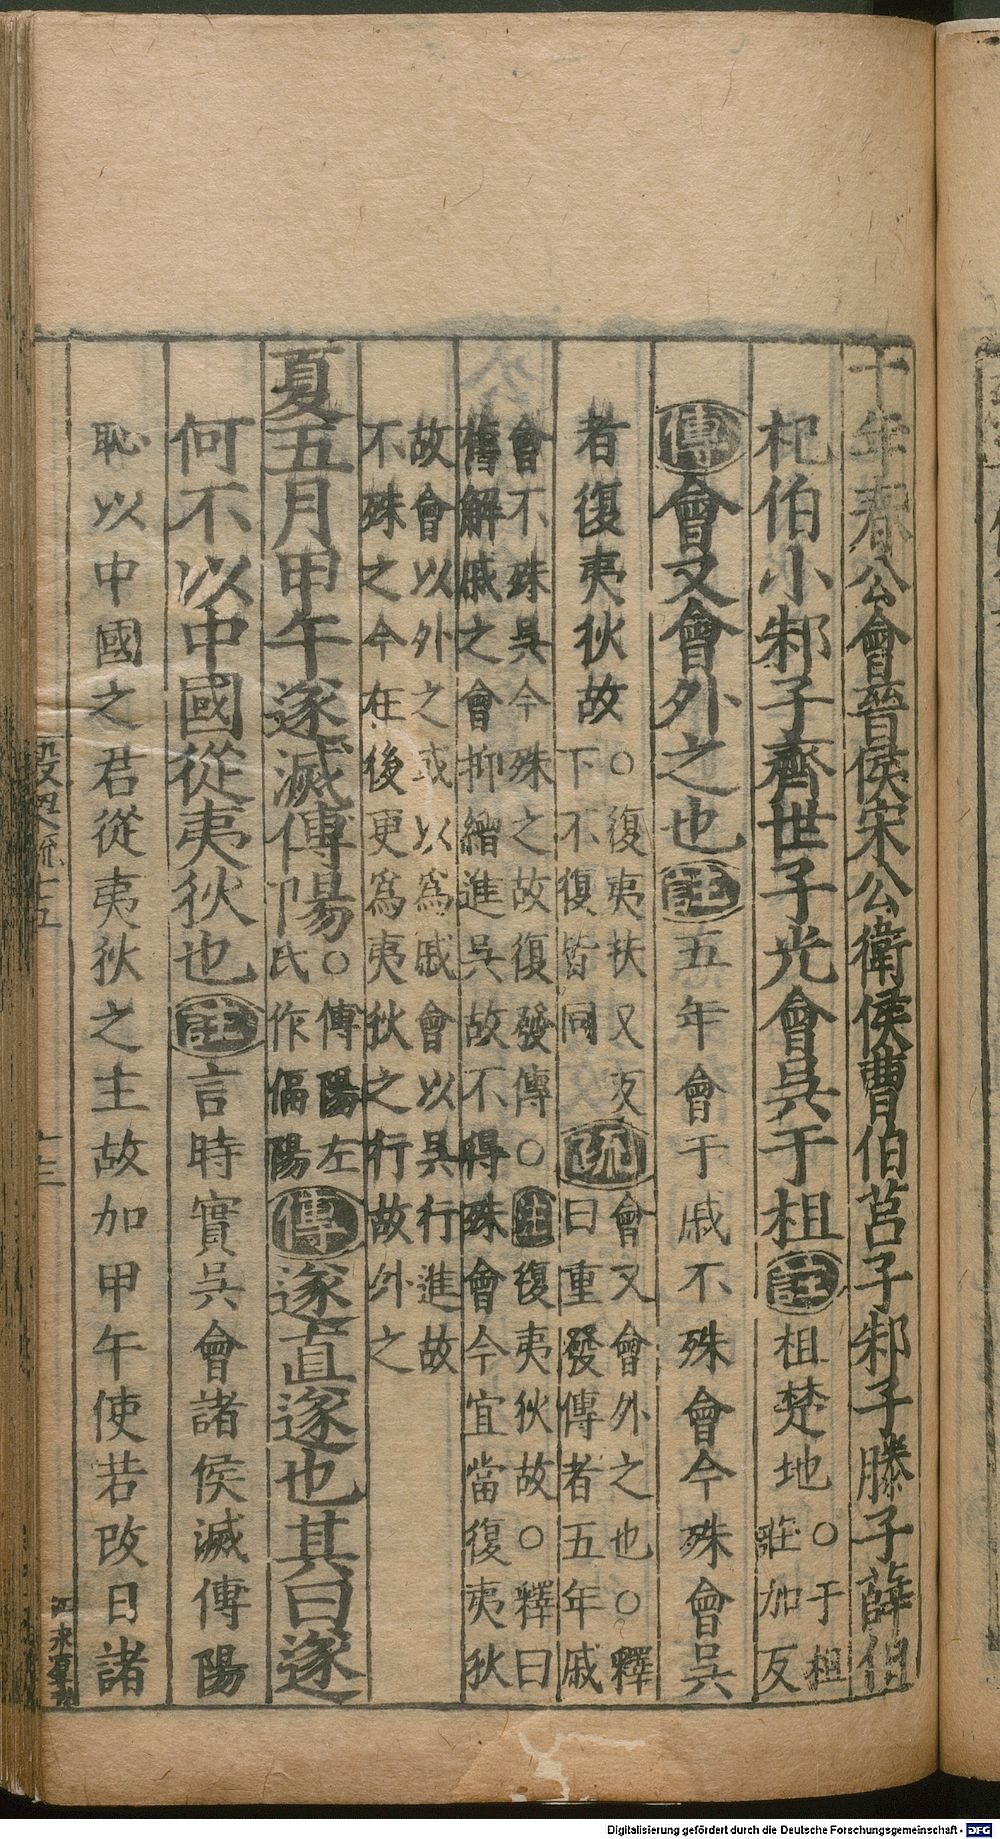 十年春公會晉侯宋公衛侯曹伯莒子邾子滕子薛伯
杞伯小邾子齊世子光會吳于柤㊟柤楚地○于柤莊加反
傳會又會外之也註五年會于戚不殊會今殊會吳
者復夷狄故○復夷扶又反下不復皆同疏會又會外之也○釋曰重發傳者五年戚
會不殊吳今殊之故復發傳○註復夷狄故○釋曰舊解戚之會抑繒進吳故不得殊會今宜當復夷狄
故會以外之或以為戚會以吳行進故不殊之今在後更為夷狄之行故外之
夏五月甲午遂滅傅陽○傅陽左氏作偪陽傳遂直遂也其曰遂
何不以中國從夷狄也註言時實吳會諸侯滅傅陽
恥以中國之君從夷狄之主故加甲午使若改日諸
穀梁疏十五 十三
Digitalisierung gefördert durch die Deutsche Forschungsgemeinschaft - DFG